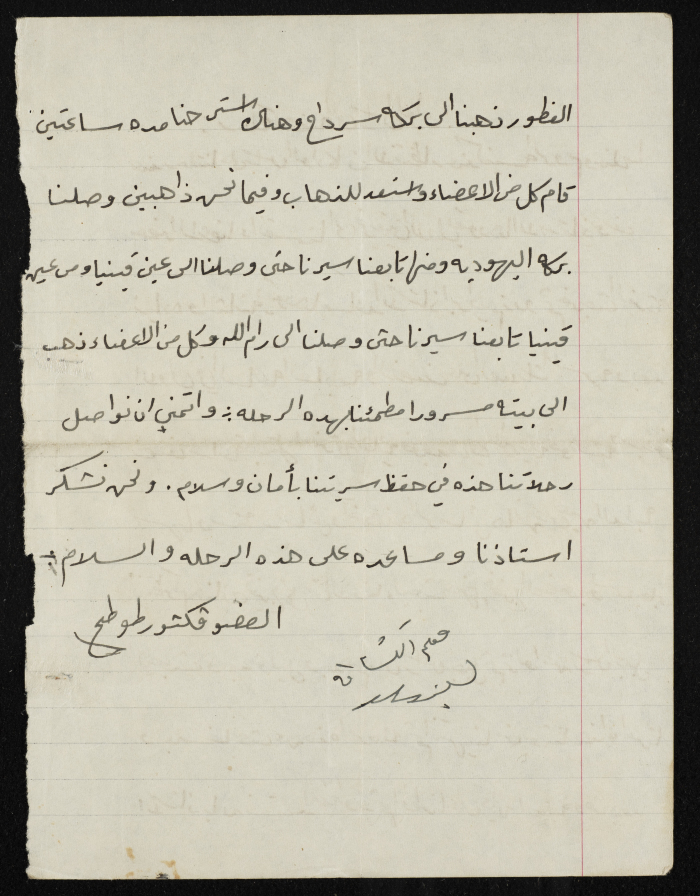 الفطور ذهبنا الى بركه سرداح وهناك استرحنا مده ساعتين
قام كل من الاعضاء واستعد للذهاب وفيما نحن ذاهبين وصلنا
بركه اليهوديه ومنها تابعنا سيرنا حتى وصلنا الى عين قينيا ومن عين
قينيا تابعنا سيرنا حتى وصلنا الى رام الله وكل من الاعضاء ذهب
الى بيته مسرورا مطمئنا بهده الرحله ; واتمنى ان نواصل
رحلاتنا هذه في حفظ سريتنا بأمان وسلام . ونحن نشكر
استاذنا ومساعده على هذه الرحله والسلام ;
العضو فكتور طوطح
معلم الكشافة